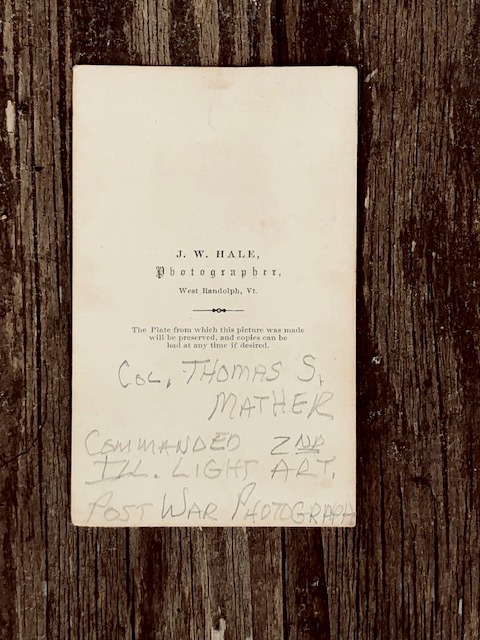 J. W. HALE,
Photographer,
West Randolph, Vt.
The Plate from which this picture was made
will be preserved, and copies can be
had at any time if desired.
COL, THOMAS S.
MATHER
COMMANDED 2ND
ILL. LIGHT ART.
POST WAR PHOTOGRAPH